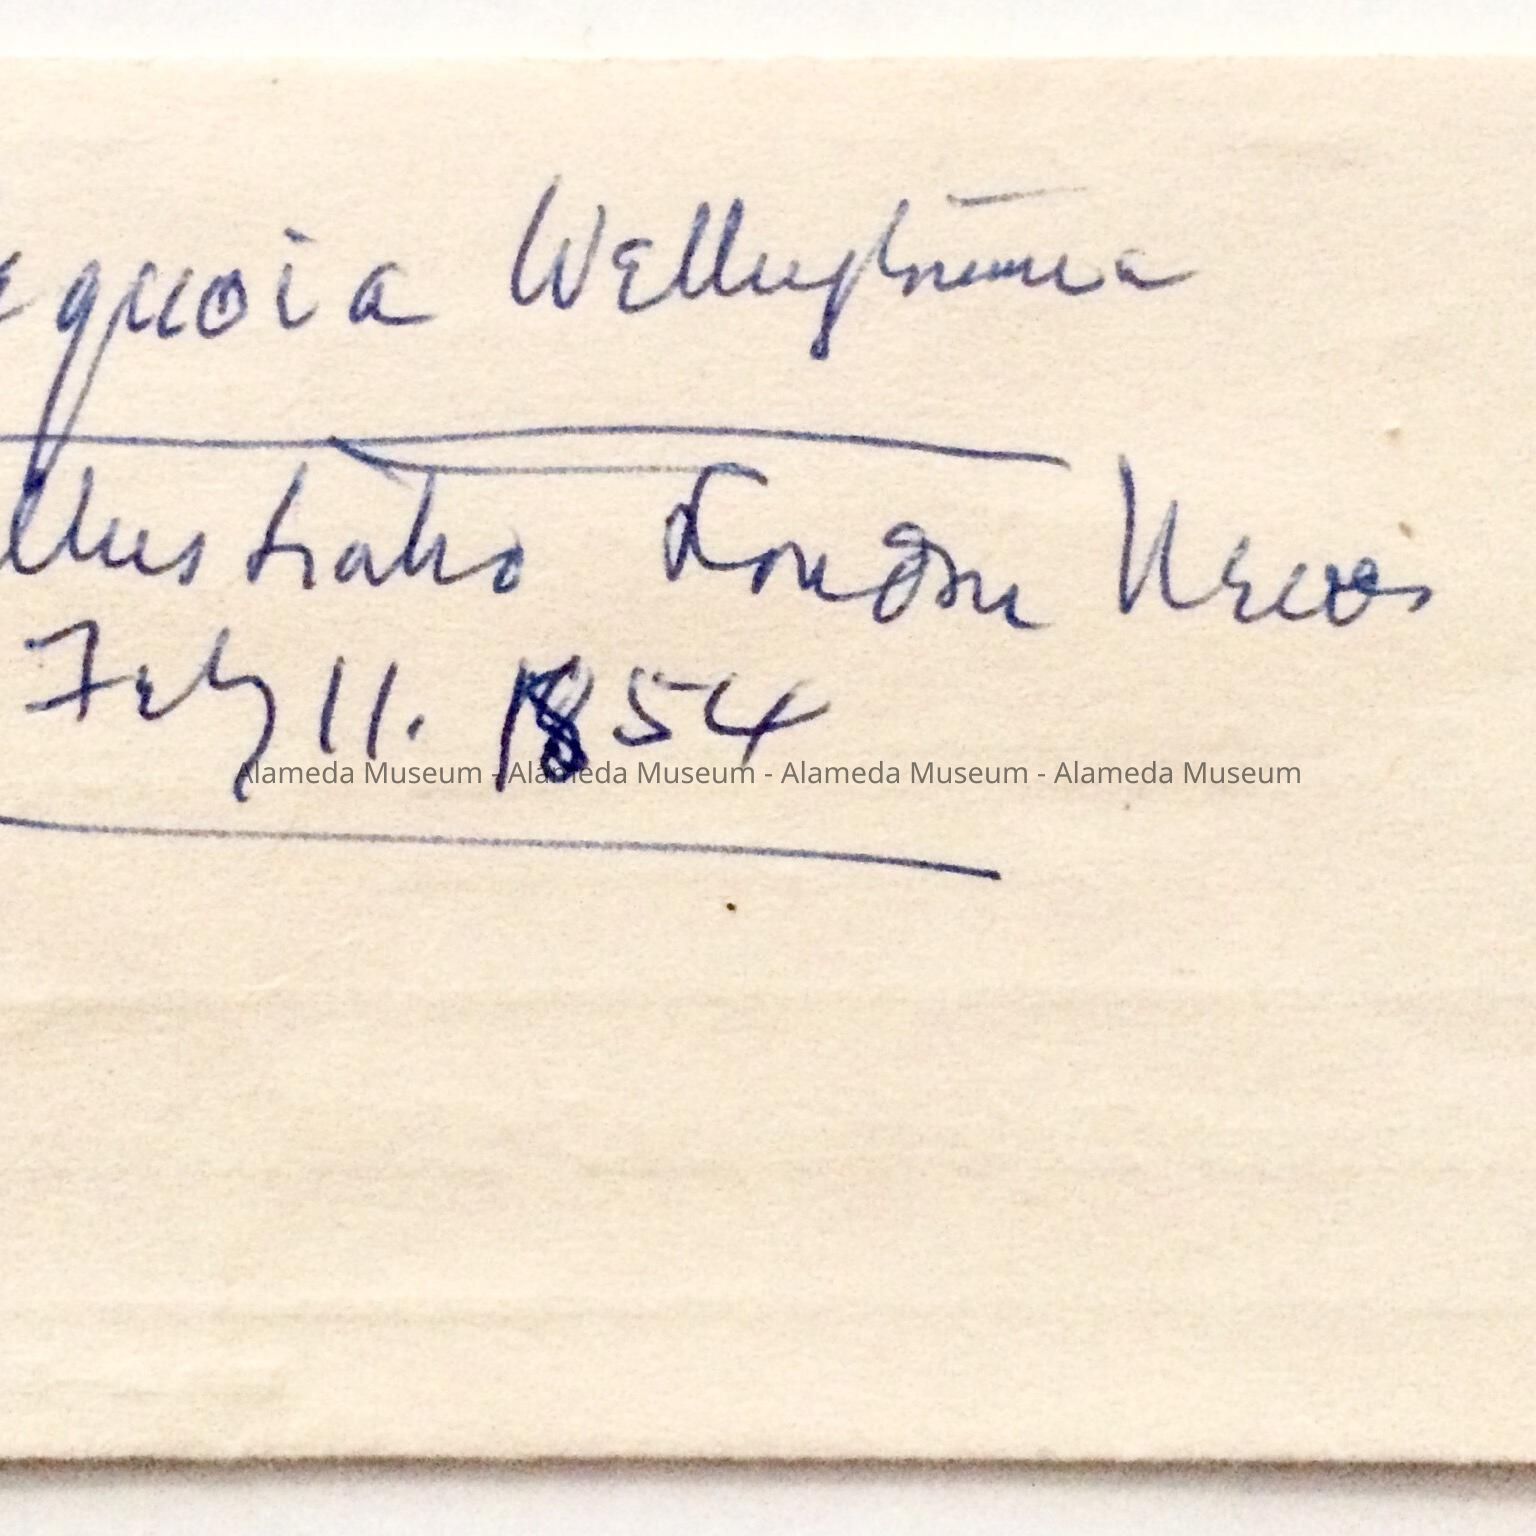 equoia Wellingtonia
Illustrated London News
Feby 11. 1854
Alameda Museum - Alameda Museum - Alameda Museum - Alameda Museum